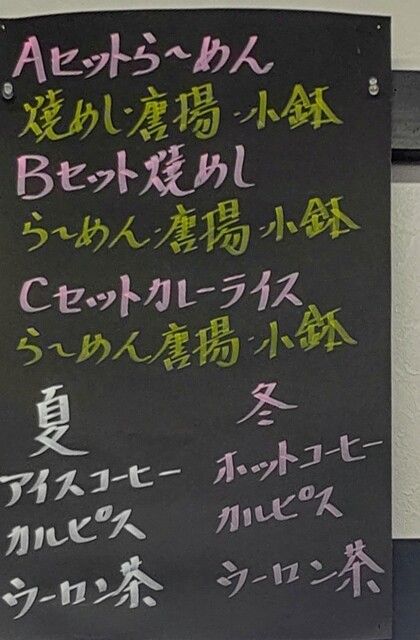 Aセットら〜めん
焼めし・唐揚・小鉢
Bセット焼めし
ら〜めん・唐揚・小鉢
Cセットカレーライス
ら〜めん唐揚・小鉢
夏
アイスコーヒー
カルピス
ウーロン茶
冬
ホットコーヒー
カルピス
ウーロン茶